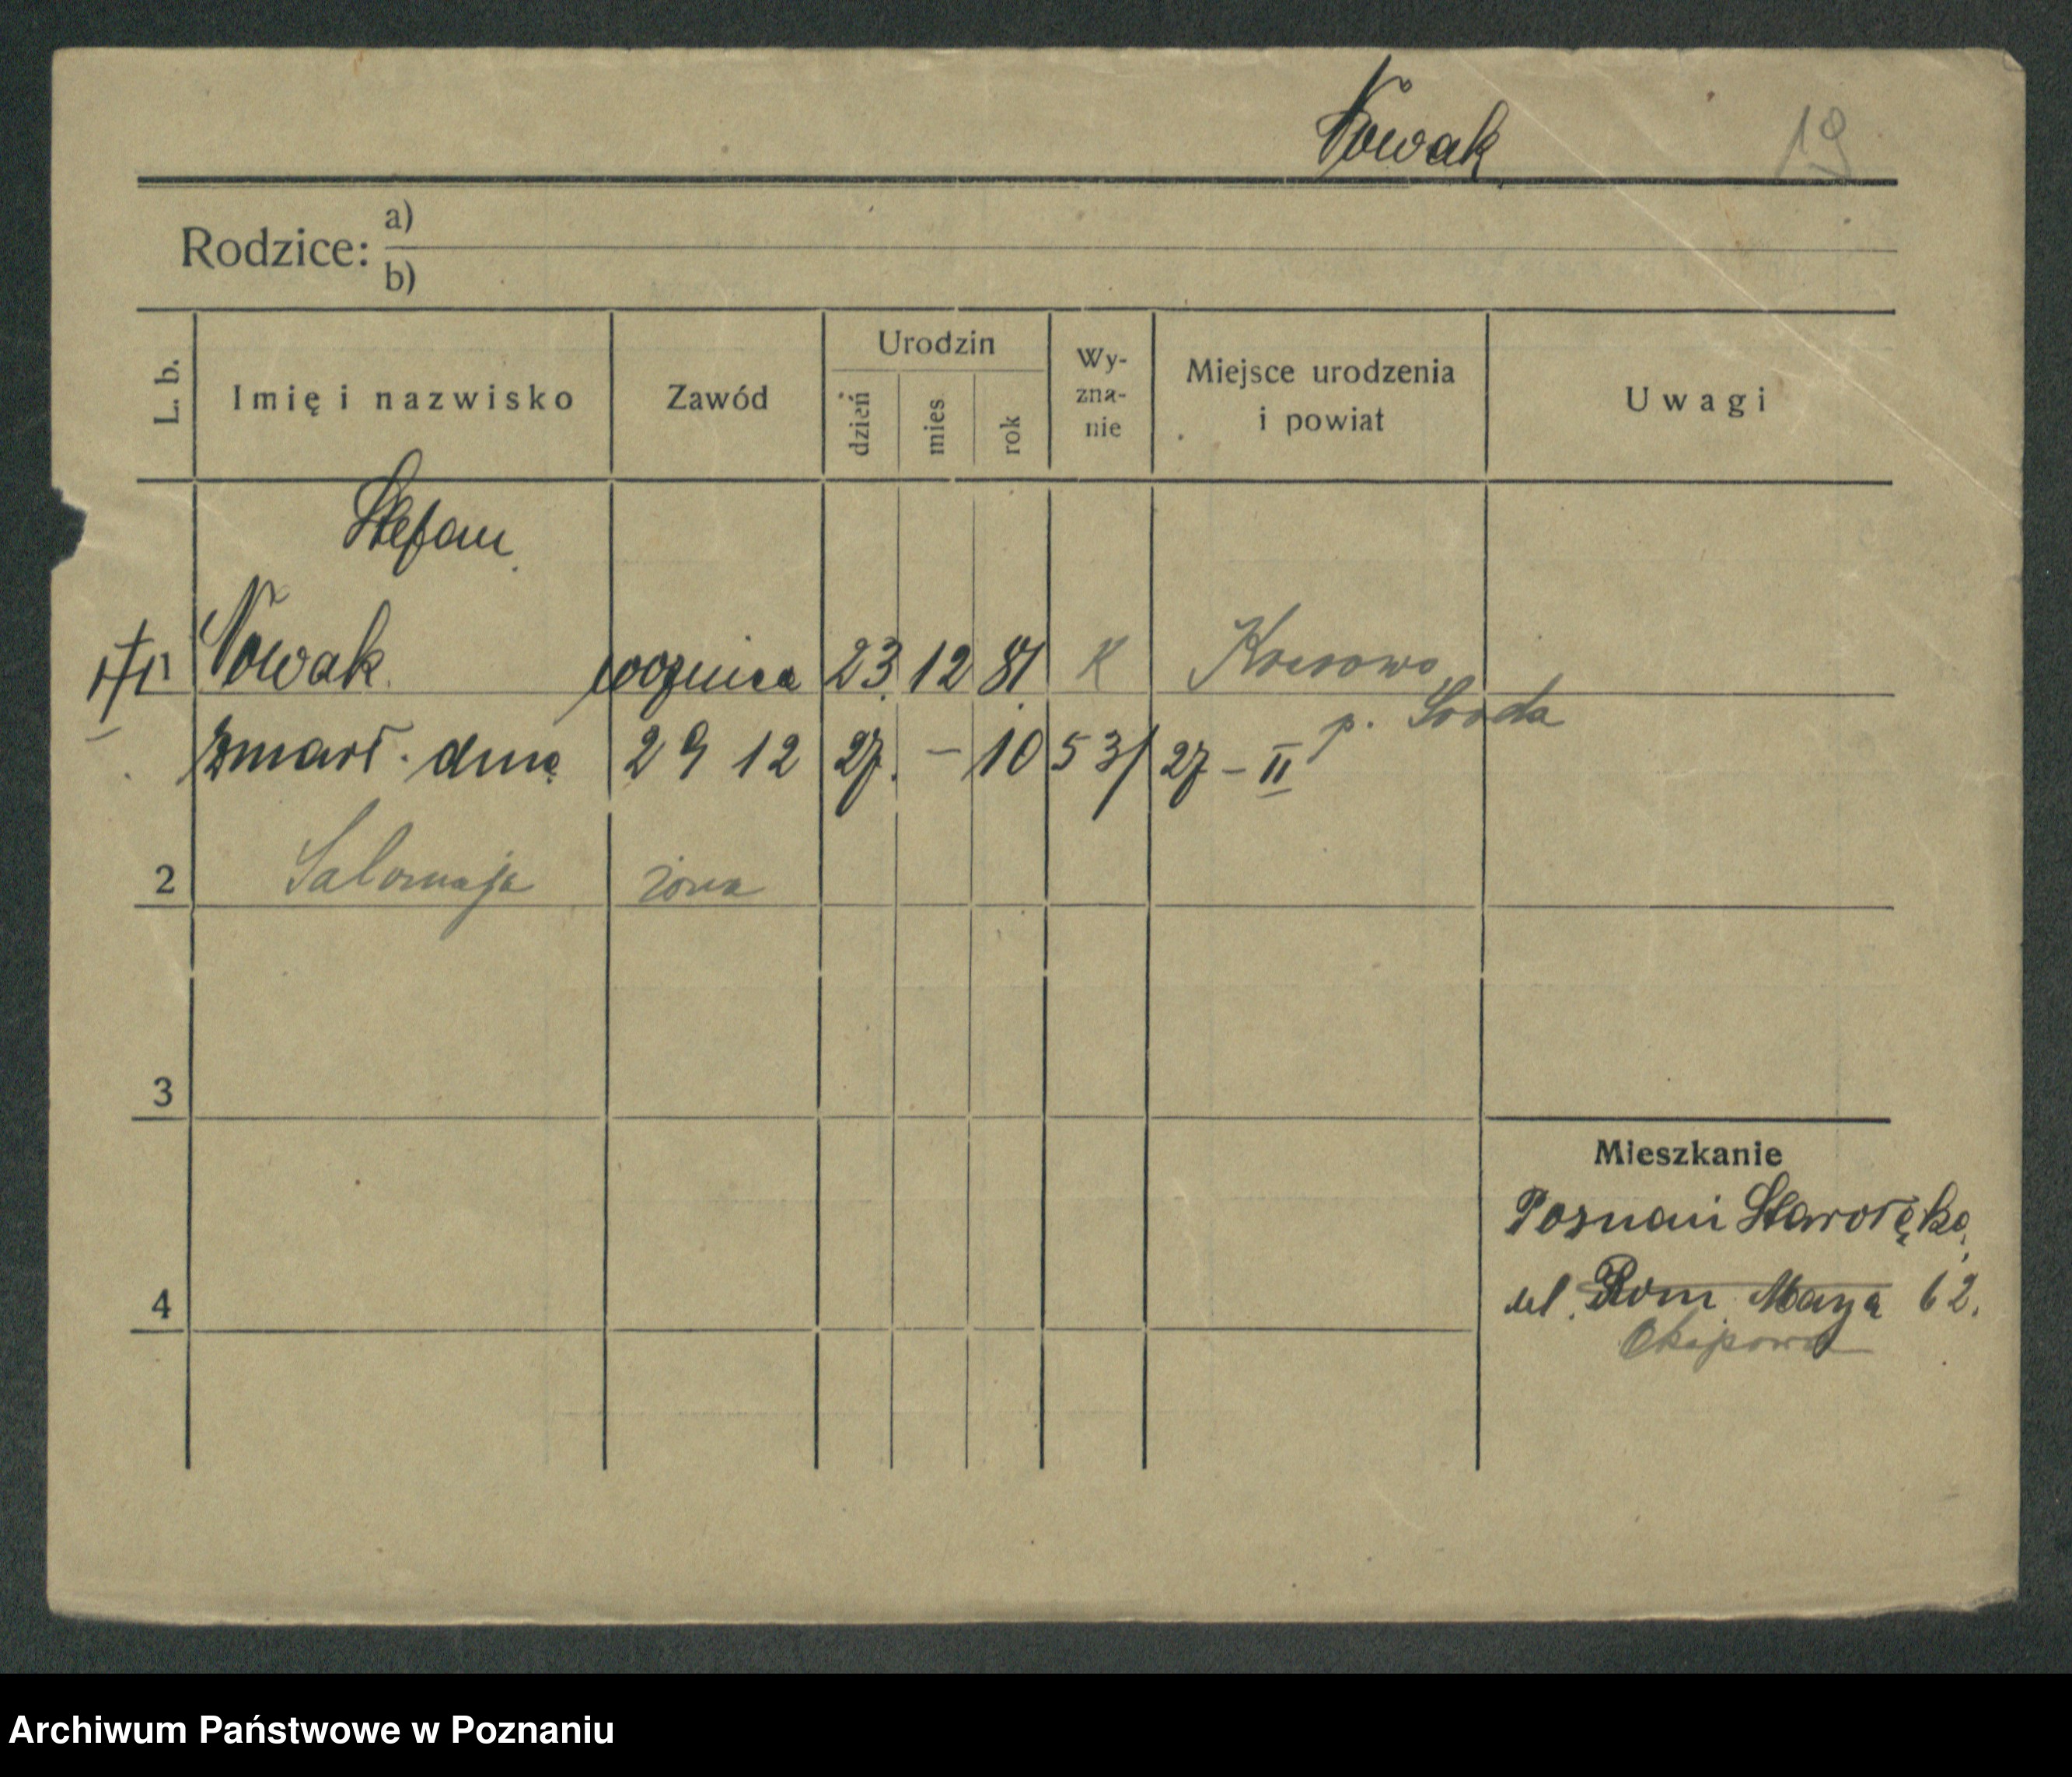 Nowak 19
Rodzice: a)
b)
L. b. Imię i nazwisko Zawód Urodzin dzień mies rok Wy-zna-nie Miejsce urodzenia i powiat Uwagi
Stefan
Nowak woznica 23 12 81 K
p. Sroda
zmarł. dnia 29 12 27. – 1053/27 – II
2 Salomeja żona
3
4
Mieszkanie
Poznań Starołęka,
ul. Maya 62.
Archiwum Państwowe w Poznaniu